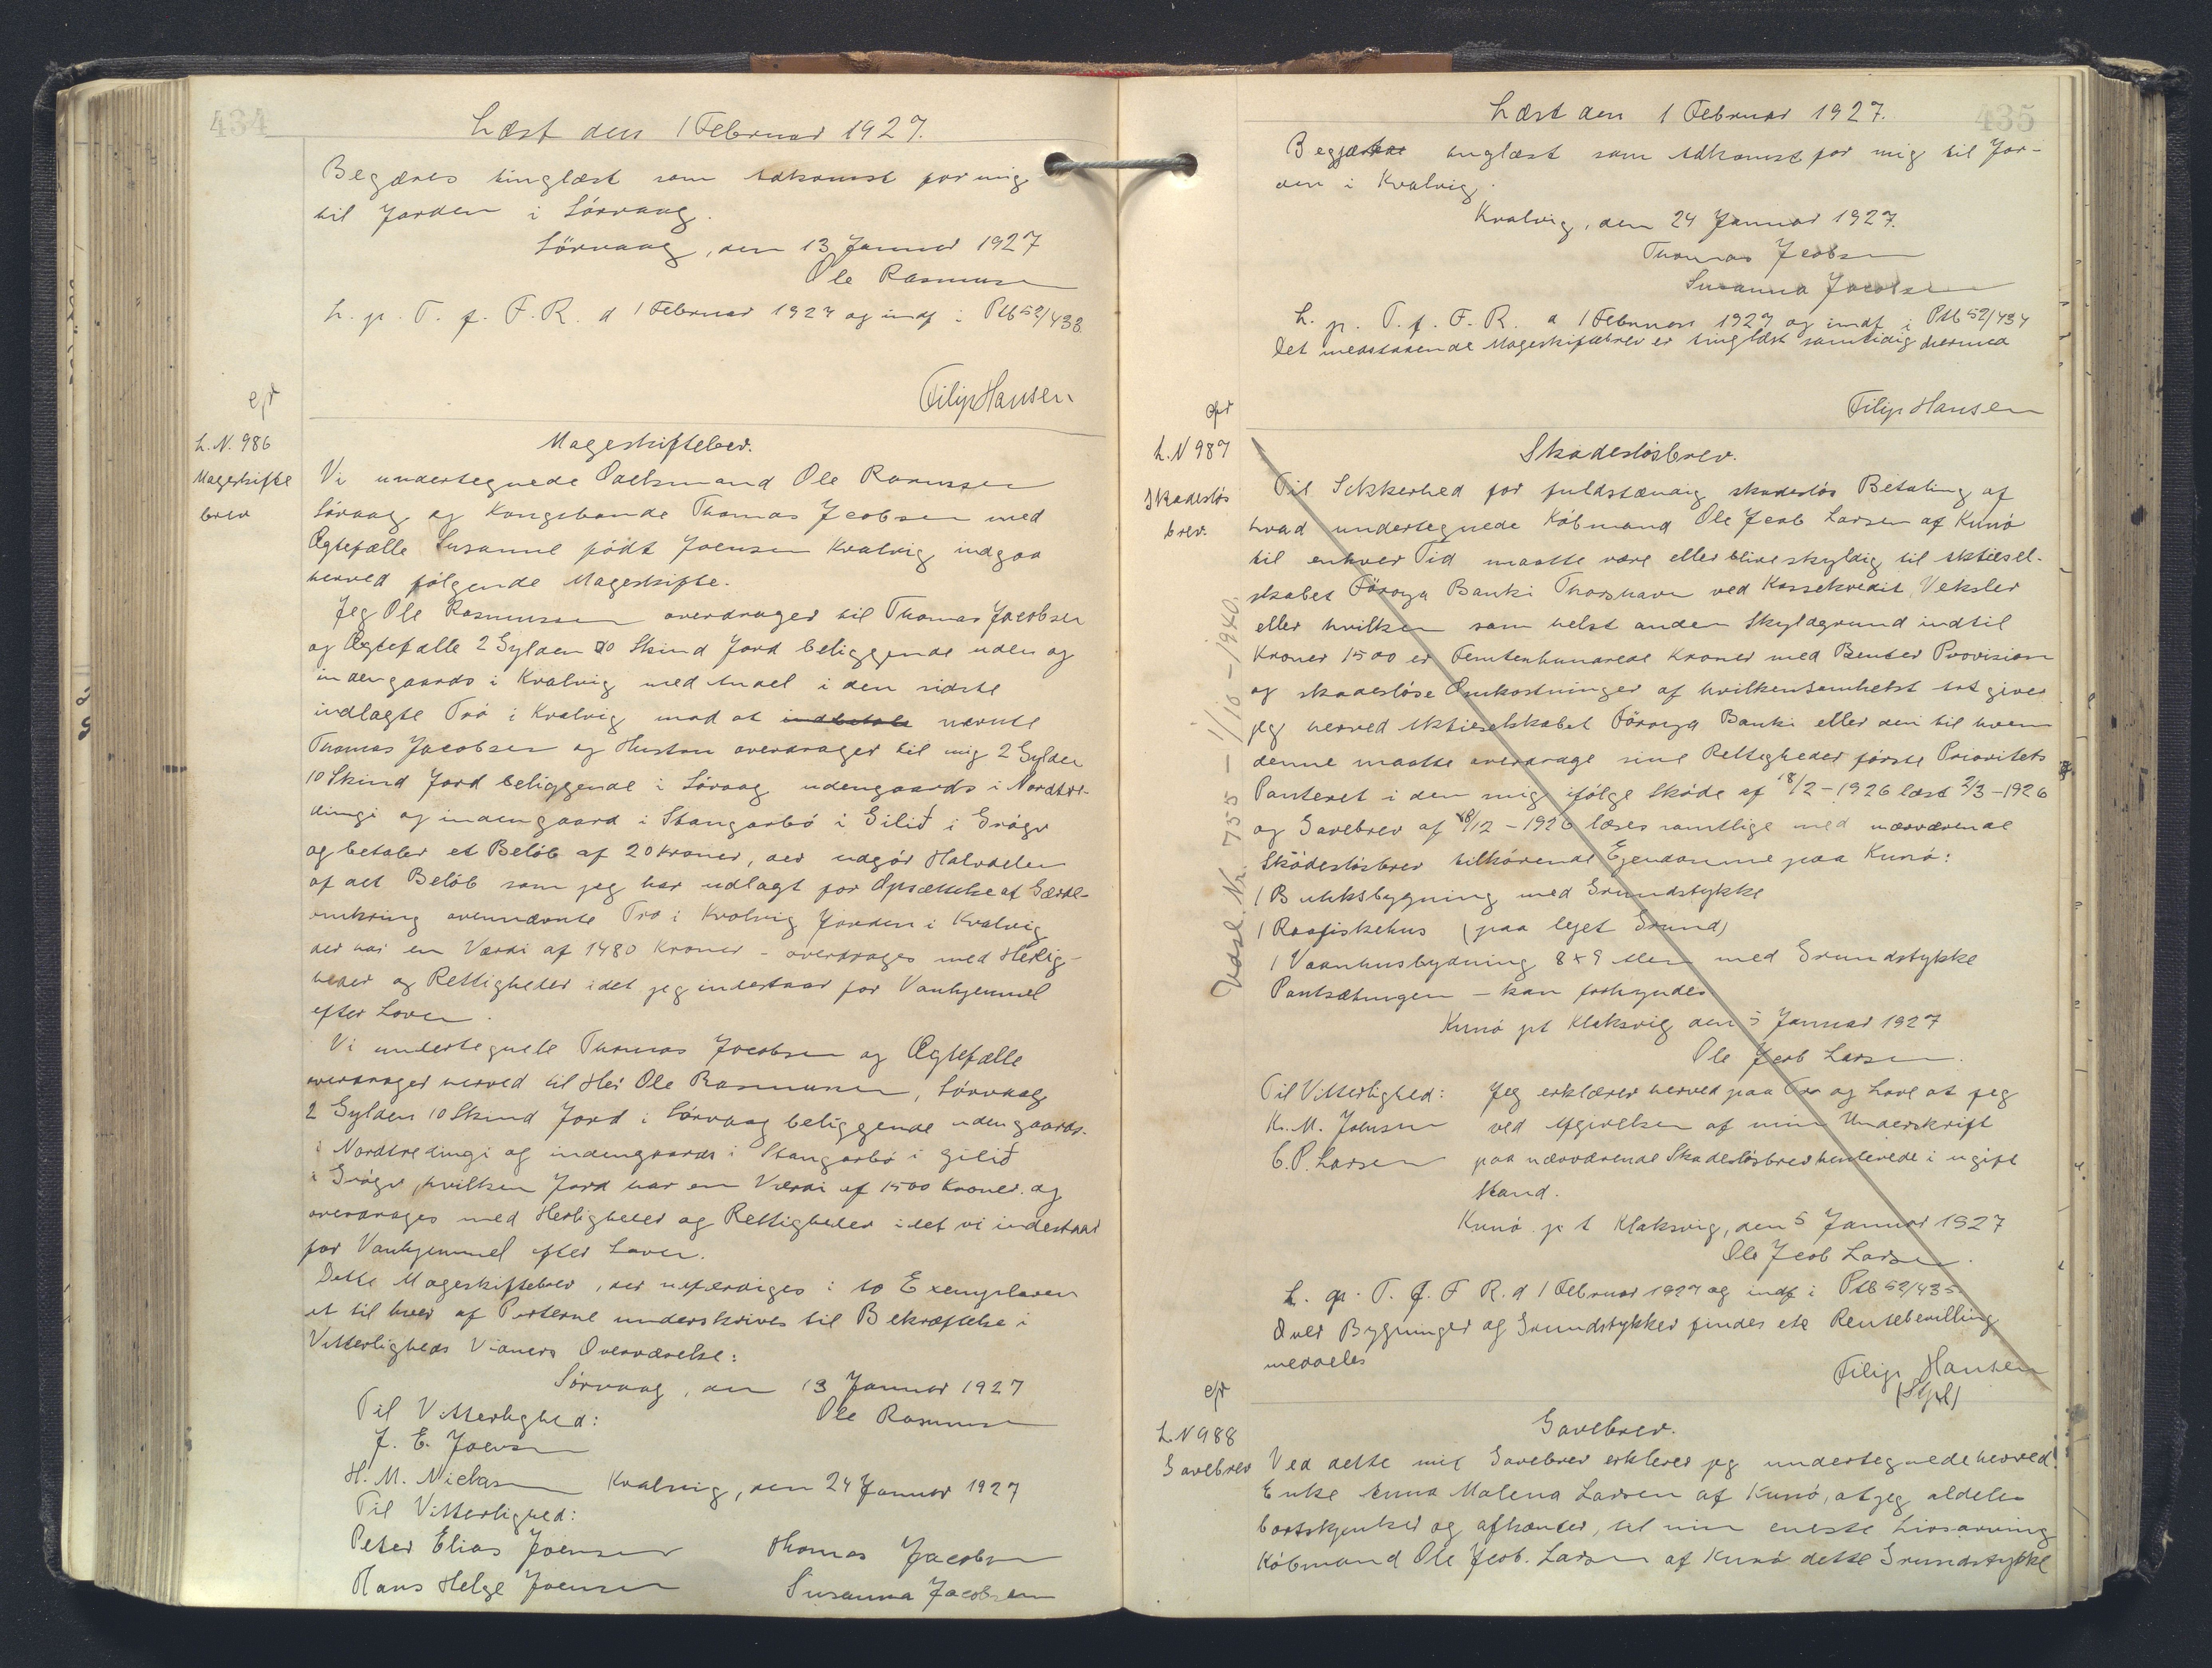 434
Læst den 1 Februar 1927.
Begæres tinglæst som Adkomst for mig
til Jorden i Sörvaag.
Sörvaag, den 13 Januar 1927
Ole Rasmusen
L. p. T. f. F. R. d 1 Februar 1927 og indf i Ptb 52/433
Filip Hansen
L. N. 986
Mageskifte
brev
Mageskiftebrev.
Vi undertegnede Ole Rasmussen
Sörvaag og Kongsbonde Thomas Jcobsen med
Ægtefælle Susanne födt Joensen Kvalvig indgaa
herved fölgende Mageskifte.
Jeg Ole Rasmussen overdrager til Thomas Jacobsen
og Ægtefælle 2 Gylden 10 Skind Jord beliggende uden og
indengaards i Kvalvig med Andel i den sidste
indlagte Trö i Kvalvig mod at nævnte
Thomas Jacobsen og Hustru overdrager til mig 2 Gylden
10 Skind Jord beliggende i Sörvaag udengaards i Nordtre-
dingi og indengaard i Stangarbö i Gilið i Grögv
og betaler et Belöb af 20 Kroner, der udgör Halvdelen
af det Belöb som jeg har udlagt for Opsættelse af Gærde
omkring ovennævnte Trö i Kvalvig Jorden i Kvalvig
der har en Værdi af 1480 Kroner - overdrages med Herlig-
heder og Rettigheder idet jeg indestaar for Vanhjemmel
efter Loven.
Vi undertegnede Thomas Jacobsen og Ægtefælle
overdrager herved til Her Ole Rasmussen, Sörvaag
2 Gylden 10 Skind Jord i Sörvaag beliggende udengaards
i Nordtredingi og indengaards i Stangarbö i Gilið
i Grögv, hvilken Jord har en Værdi af 1500 Kroner og
overdrages med Herligheder og Rettigheder idet vi indestaar
for Vanhjemmel efter Loven.
Dette Mageskiftebrev, der udfærdiges i to Exemplarer
et til hver af Parterne underskrives til Bekræftelse i
Vitterligheds Vidners Overværelse:
Sörvaag, den 13 Januar 1927
Til Vitterlighed: Ole Rasmusen
J. E. Joensen
H. M. Niclasen Kvalvig, den 24 Januar 1927
Til Vitterlighed:
Peter Elias Joensen Thomas Jacobsen
Hans Helge Joensen Susanna Jacobsen
435
Læst den 1 Februar 1927.
Begjæres tinglæst som Adkomst for mig til Jor-
den i Kvalvig.
Kvalvig, den 24 Januar 1927.
Thomas Jcobsen
Susanna Jacobsen
L. p. T. f. F. R. d 1 Februar 1927 og indf i Ptb 52/434
Det medstaaende Mageskiftebrev er tinglæst samtidig hermed
Filip Hansen
L. N 987
Skadeslös
brev.
Udsl. Nr. 755 - 1/10 - 1940.
Skadeslösbrev.
Til Sikkerhed for fuldstændig skadeslös Betaling af
hvad undertegnede Köbmand Ole Jcob Larsen af Kunö
til enhver Tid maatte være eller blive skyldig til Aktiesel-
skabet Föroya Banki Thorshavn ved Kassekredit, Veksler
eller hvilken som helst anden Skyldgrund indtil
Kroner 1500 er Femtenhundrede Kroner med Renter Provision
og skadeslöse Omkostninger af hvilkensomhelst Art giver
jeg herved Aktieselskabet Föroya Banki eller den til hvem
denne maatte overdrage sine Rettigheder förste Prioritets
Panteret i den mig ifölge Sköde af 18/2 - 1926 læst 2/3 - 1926
og Gavebrev af 18/12 - 1926 læses samtlige med nærværende
Skådeslösbrev tilhörende Ejendomme paa Kunö:
1 Butiksbygning med Grundstykke
1 Raafiskehus (paa lejet Grund)
1 Vaanhusbydning 8 x 9 Alen med Grundstykke
Pantsætningen - kan forhyndes
Kunö pt Klaksvig den 5 Januar 1927
Ole Jcob Larsen.
Til Vitterlighed: Jeg erklærer herved paa Tro og Love at jeg
K. M. Joensen ved Afgivelsen af min Underskrift
C. P. Larsen paa nærværende Skadeslösbrev henlevede i ugift
Stand.
Kunö p t Klaksvig, den 5 Januar 1927
Ole Jcob Larsen.
L. p. T. f. F R. d 1 Februar 1927 og indf i Ptb 52/435
Over Bygninger og Grundstykker findes ete Rentebevilling
meddeles
Filip Hansen
L. N 988
Gavebrev
Gavebrev.
Ved dette mit Gavebrev erklerer jeg undertegnede herved
Enke Anna Malena Larsen af Kunö, at jeg aldeles
bortskjenker og afhænder, til min eneste Livsarving
Köbmand Ole Jcob. Larsen af Kunö dette Grundstykke